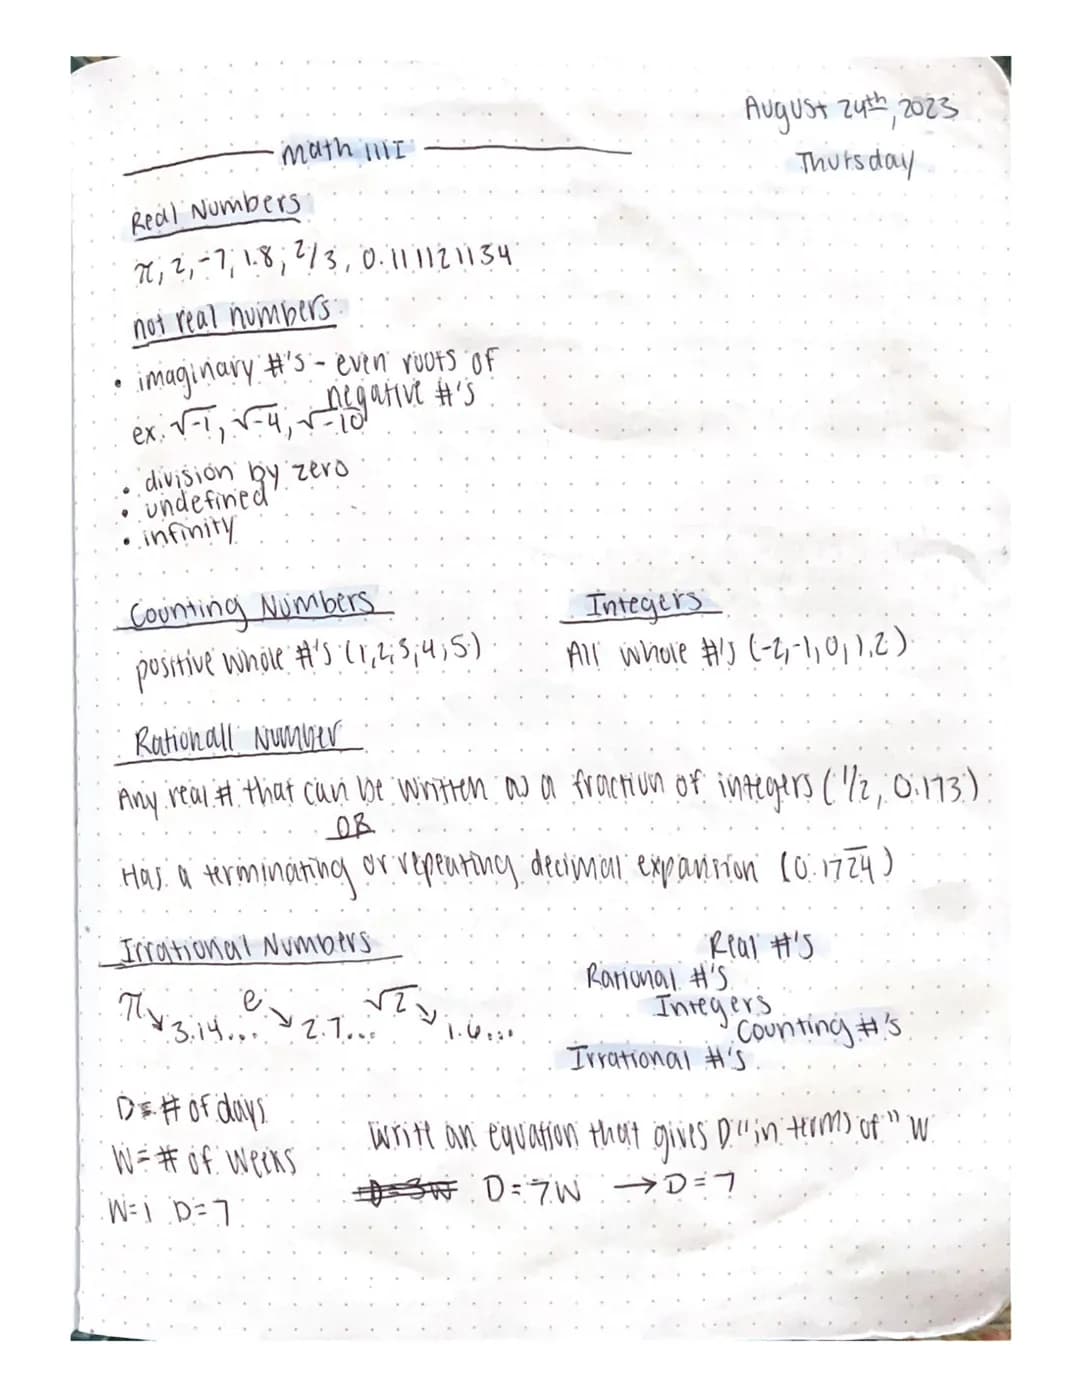 August 24th, 2023
Thursday
Math IIII
Real Numbers
π, 2, -7, 1.8, 2/3, 0.111121134
not real numbers
• imaginary #'s - even roots of
negative #'s
ex. √-1, √-4, √-10
• division by zero
• undefined
• infinity
Counting Numbers
positive whole #'s (1,2,3,4,5)
Integers
All whole #'s (-2,-1,0,1,2)
Rationall Number
Any real # that can be written as a fraction of integers (1/2, 0.173)
OR
Has a terminating or repeating decimal expansion (0.172̅4̅)
Irrational Numbers
π ↘ 3.14... e ↘ 2.7... √2 ↘ 1.6...
Real #'s
Rational #'s
Integers
Counting #'s
Irrational #'s
D = # of days
W = # of weeks
W=1 D=7
Write an equation that gives D "in terms of" W
D=3W D=7W → D=7